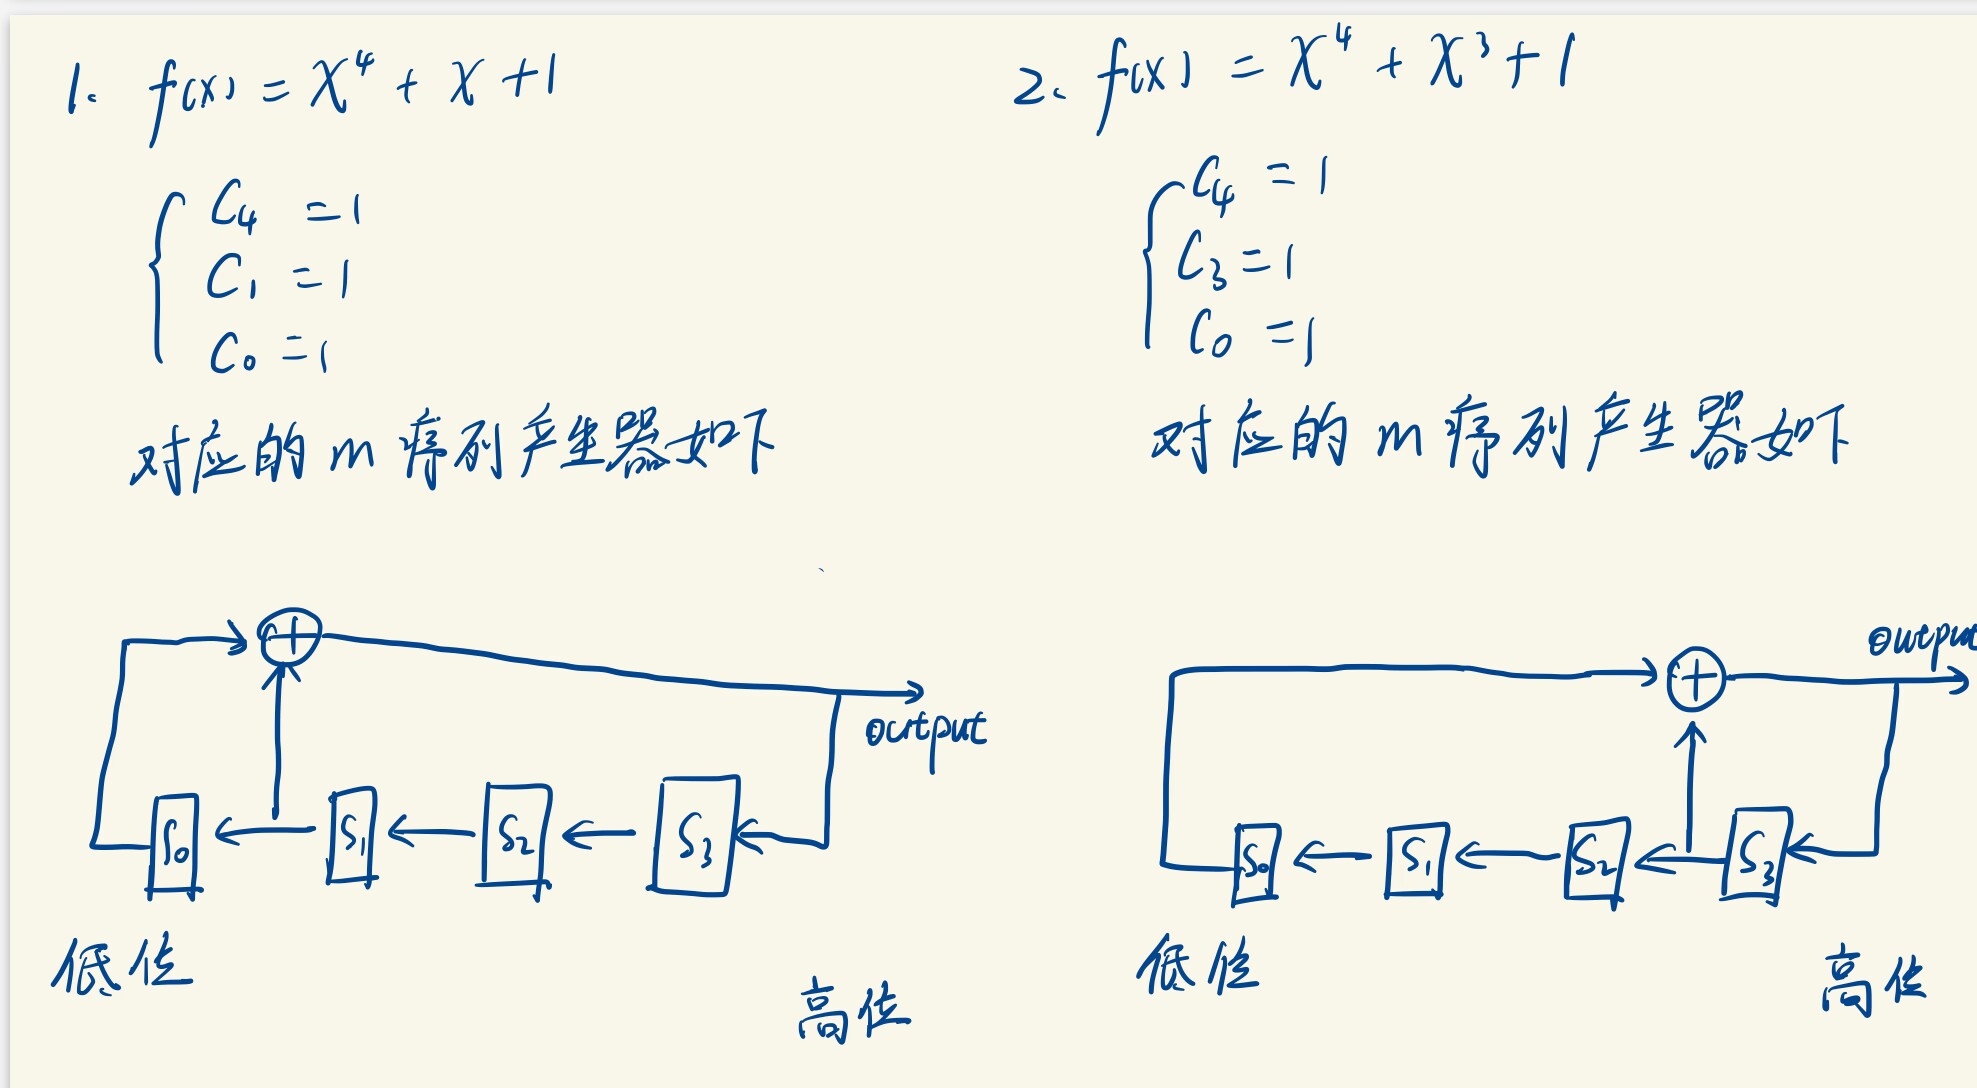 1. f(x) = x⁴ + x + 1
C₄ = 1
C₁ = 1
C₀ = 1
对应的 m 序列产生器如下
output
S₀ S₁ S₂ S₃
低位
高位
2. f(x) = x⁴ + x³ + 1
C₄ = 1
C₃ = 1
C₀ = 1
对应的 m 序列产生器如下
output
S₀ S₁ S₂ S₃
低位
高位